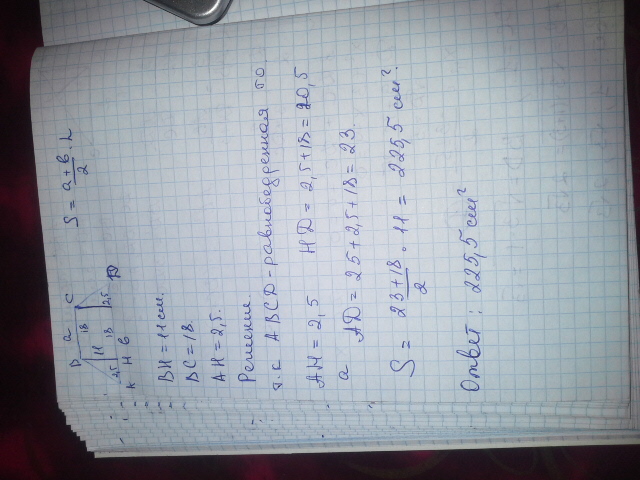 B a C S = a+b/2 · h
18
11 18
2,5 2,5
H в D
BH = 11 см.
BC = 18.
AH = 2,5.
Решение
т.к ABCD - равнобедренная то.
AH = 2,5 HD = 2,5 + 18 = 20,5
а AD = 25 + 2,5 + 18 = 23.
S = 23 + 18/2 · 11 = 225,5 см².
Ответ : 225,5 см²